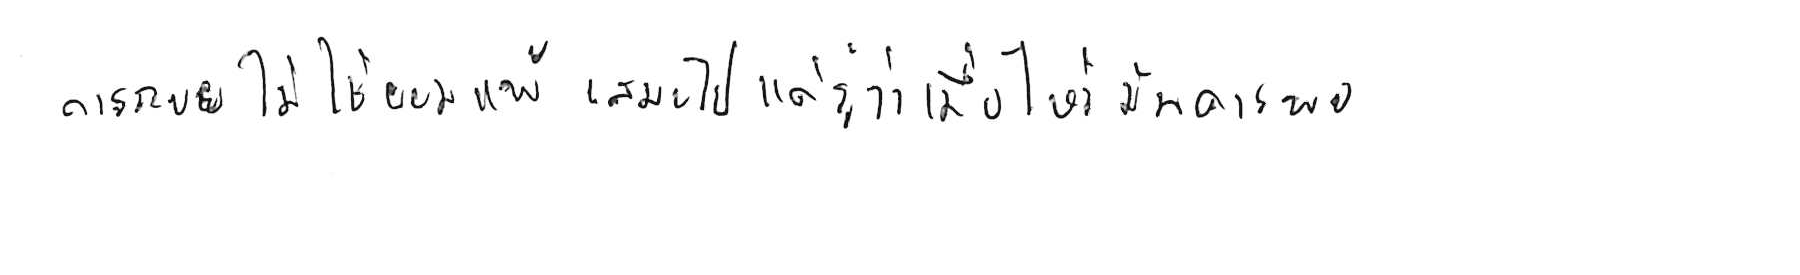 การถอย ไม่ใช่ยอมแพ้ เสมอไป แต่รู้ว่าเมื่อไหร่มันควรพอ